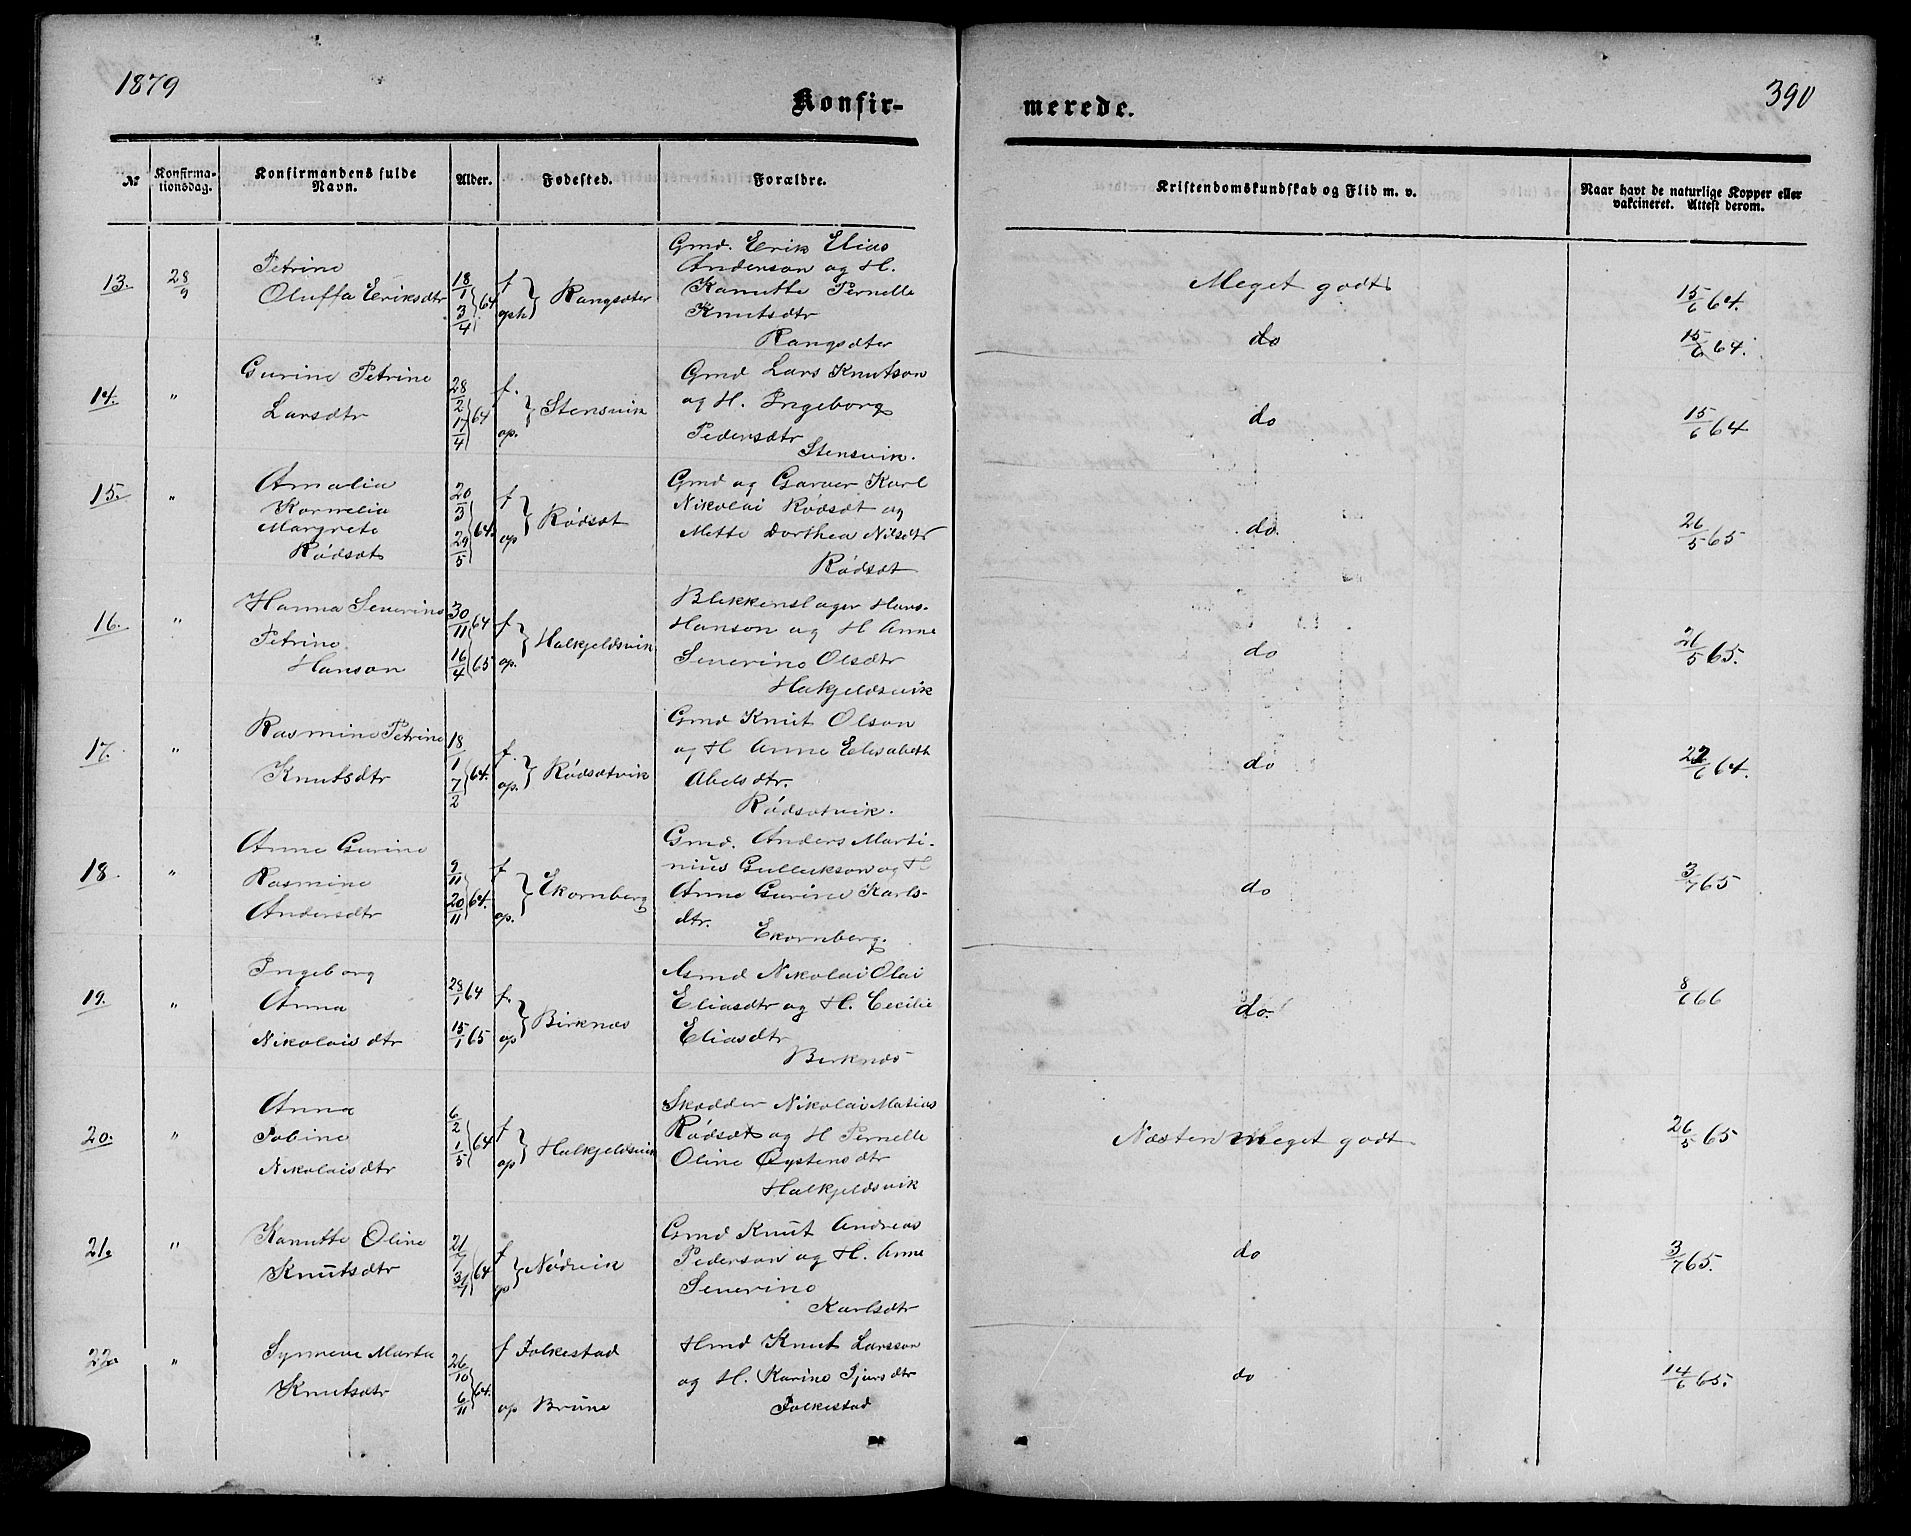 1879
Konfir-
merede.
390
No
Konfirma-
tionsdag.
Konfirmandens fulde
Navn.
Alder.
Fødested.
Forældre.
Kristendomskundskab og Flid m. v.
Naar havt de naturlige Kopper eller
vakcineret. Attest derom.
13. 28/9 Petrine
Oluffa Eriksdtr
18/1 3/4 64
f oph Rangsæter
Gmd. Erik Elias
Anderson og H.
Kanutte Pernelle
Knutsdtr
Rangsæter
Meget godt
15/6 64.
do
15/6 64.
14. " Gurine Petrine
Larsdtr
28/2 17/4 64
f. op. Stensvik
Gmd Lars Knutson
og H. Ingeborg
Pedersdtr
Stensvik.
do
15/6 64
15. " Amalia
Kornelia
Margrete
Rødsæt
20/3 29/5 64.
f op Rødsæt
Gmd og Garver Karl
Nikolai Rødsæt og
Mette Dorthea Nilsdtr
Rødsæt
do.
26/5 65
16. " Hanna Severine
Petrine
Hanson
30/11 64 16/4 65
f op. Halkjeldsvik
Blikkenslager Hans
Hanson og H Anne
Severine Olsdtr
Halkjeldsvik
do
26/5 65.
17. " Rasmine Petrine
Knutsdtr
18/1 7/2 64.
f. op. Rødsætvik
Gmd Knut Olson
og H Anne Elisabett
Abelsdtr.
Rødsætvik.
do
22/6 64.
18. " Anne Gurine
Rasmine
Andersdtr
9/11 20/11 64.
f op. Ekornberg
Gmd. Anders Marti-
nius Gullukson og H
Anne Gurine Karls-
dtr.
Ekornberg.
do
3/7 65
19. " Ingeborg
Anna
Nikolais dtr
28/1 64 15/1 65
f. op Birknes
Gmd Nikolai Olai
Eliasdtr og H. Cecilie
Eliasdtr
Birknes
do.
8/6 66
20. " Anna
Jobine
Nikolaisdtr
6/2 1/5 64
f op Halkjeldsvik
Skodder Nikolai Matias
Rødsæt og H Pernelle
Oline Øystensdtr
Halkjeldsvik
Næsten Meget godt
26/5 65
21. " Kanutte Oline
Knutsdtr
21/7 31/7 64
f op Nødvik
Gmd Knut Andreas
Pederson og H. Anne
Severine
Karlsdtr
do
3/7 65.
22. " Synneve Marta
Knutsdtr
26/10 6/11 64.
f Folkestad
op Brune
Hmd Knut Larsson
og H. Karine Sjursdtr
Folkestad
do
14/6 65.